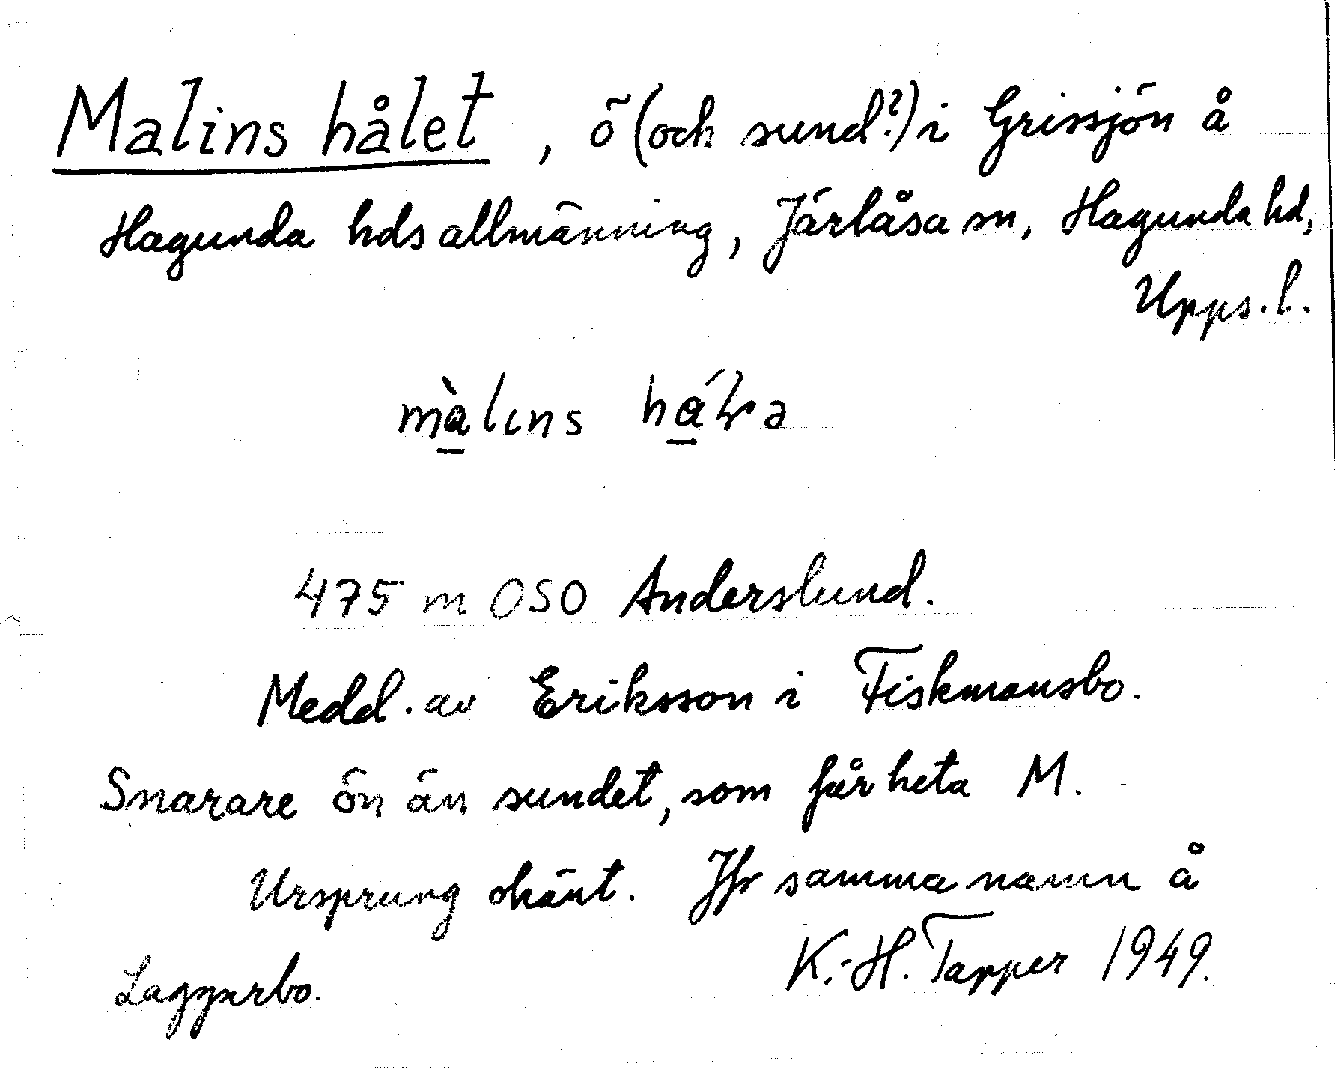 Malins hålet, ö (och sund?) i Grissjön å
Hagunda hds allmänning, Järlåsa sn, Hagunda hd,
Upps. l.
màlıns
475 m OSO Anderslund.
Medd. av Eriksson i Fiskmansbo.
Snarare ön än sundet, som får heta M.
Ursprung okänt. Jfr samma namn å
Laggarbo. K.-H. Tapper 1949.